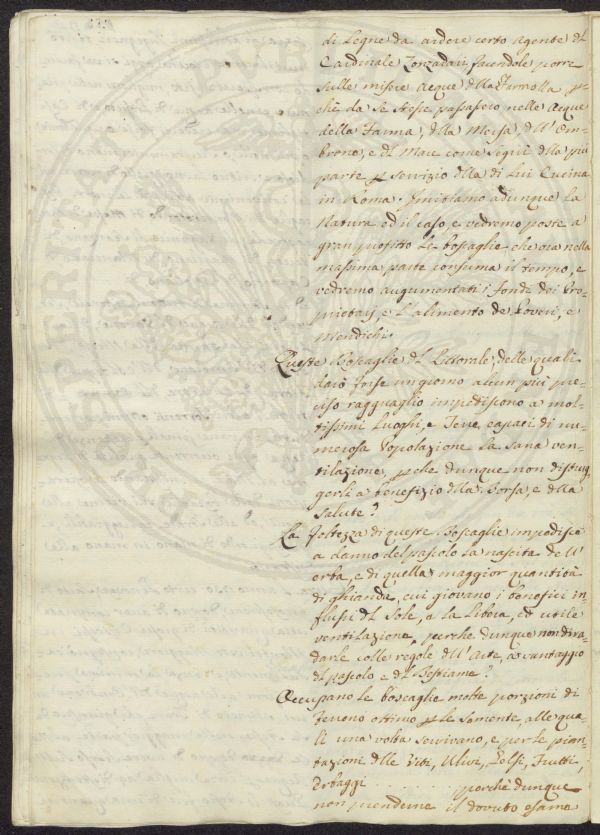 di Legne da ardere certo Agente dl
Cardinale Zonzadari facendole porre
sulle misere acque dlla Farmolla, p-
chè da se stesse passassero nelle Acque
della Farma, dlla Mersa, dll'Om-
brone, e dl Mare come seguì dlla più
parte p servizio dlla di Lui Cucina
in Roma. Imitiamo adunque la
Natura ed il caso, e vedremo poste a
gran profitto le boscaglie che ora nella
massima parte consuma il tempo, e
vedremo augumentati i fondi dei Pro-
prietarj, e l'alimento de Poveri, e
Mendichi.
Queste Boscaglie dl Littorale, delle quali
darò forse un giorno alcun più pre-
ciso ragguaglio impediscono a mol-
tissimi Luoghi, e Terre, capaci di nu-
merosa Popolazione la sana ven-
tilazione, pche dunque non distrug-
gerli a benefizio dlla Borsa, e dlla
Salute?
La Foltezza di queste Boscaglie impedisce
a danno del pascolo la nascita dell'
erba, e di quella maggior quantità
di ghianda, cui giovano i benefici in-
flussi dl Sole, e la libera, ed utile
ventilazione, perchè dunque non dira-
darle colle regole dll'Arte, a vantaggio
dl pascolo e dl Bestiame?
Occupano le boscaglie molte porzioni di
Terreno ottimo p le Semente, alle qua-
li una volta servivano, e per le pian-
tazioni dlle Viti, Ulivi, Gelsi, Frutti,
Erbaggi . . . . . . . perchè dunque
non prenderne il dovuto esame